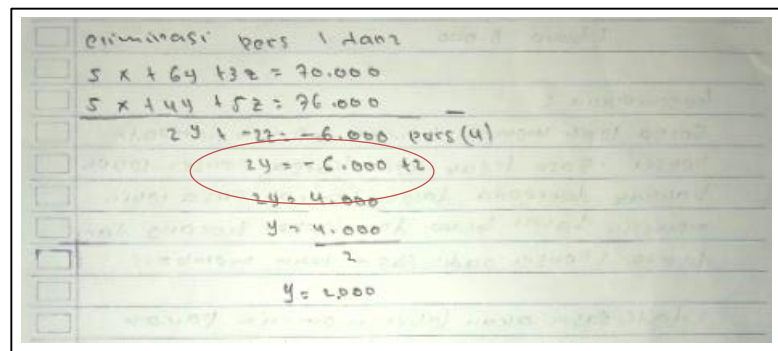 eliminasi pers 1 dan 2
5x + 6y + 3z = 70.000
5x + 4y + 5z = 76.000 –
2y + -2z = -6.000 pers (4)
2y = -6.000 +2
2y = 4.000
y = 4.000
2
y = 2.000